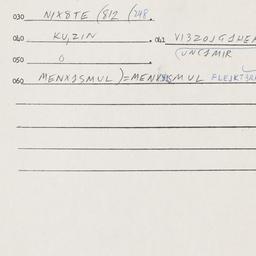 030 NIX8TE (812 (248.
040 KU,ZIN . 041 VI3ZOJG1HEA
(UNC1MIR
050 0 .
060 MENX1SMUL)=MENX SMUL FLEJKT3R